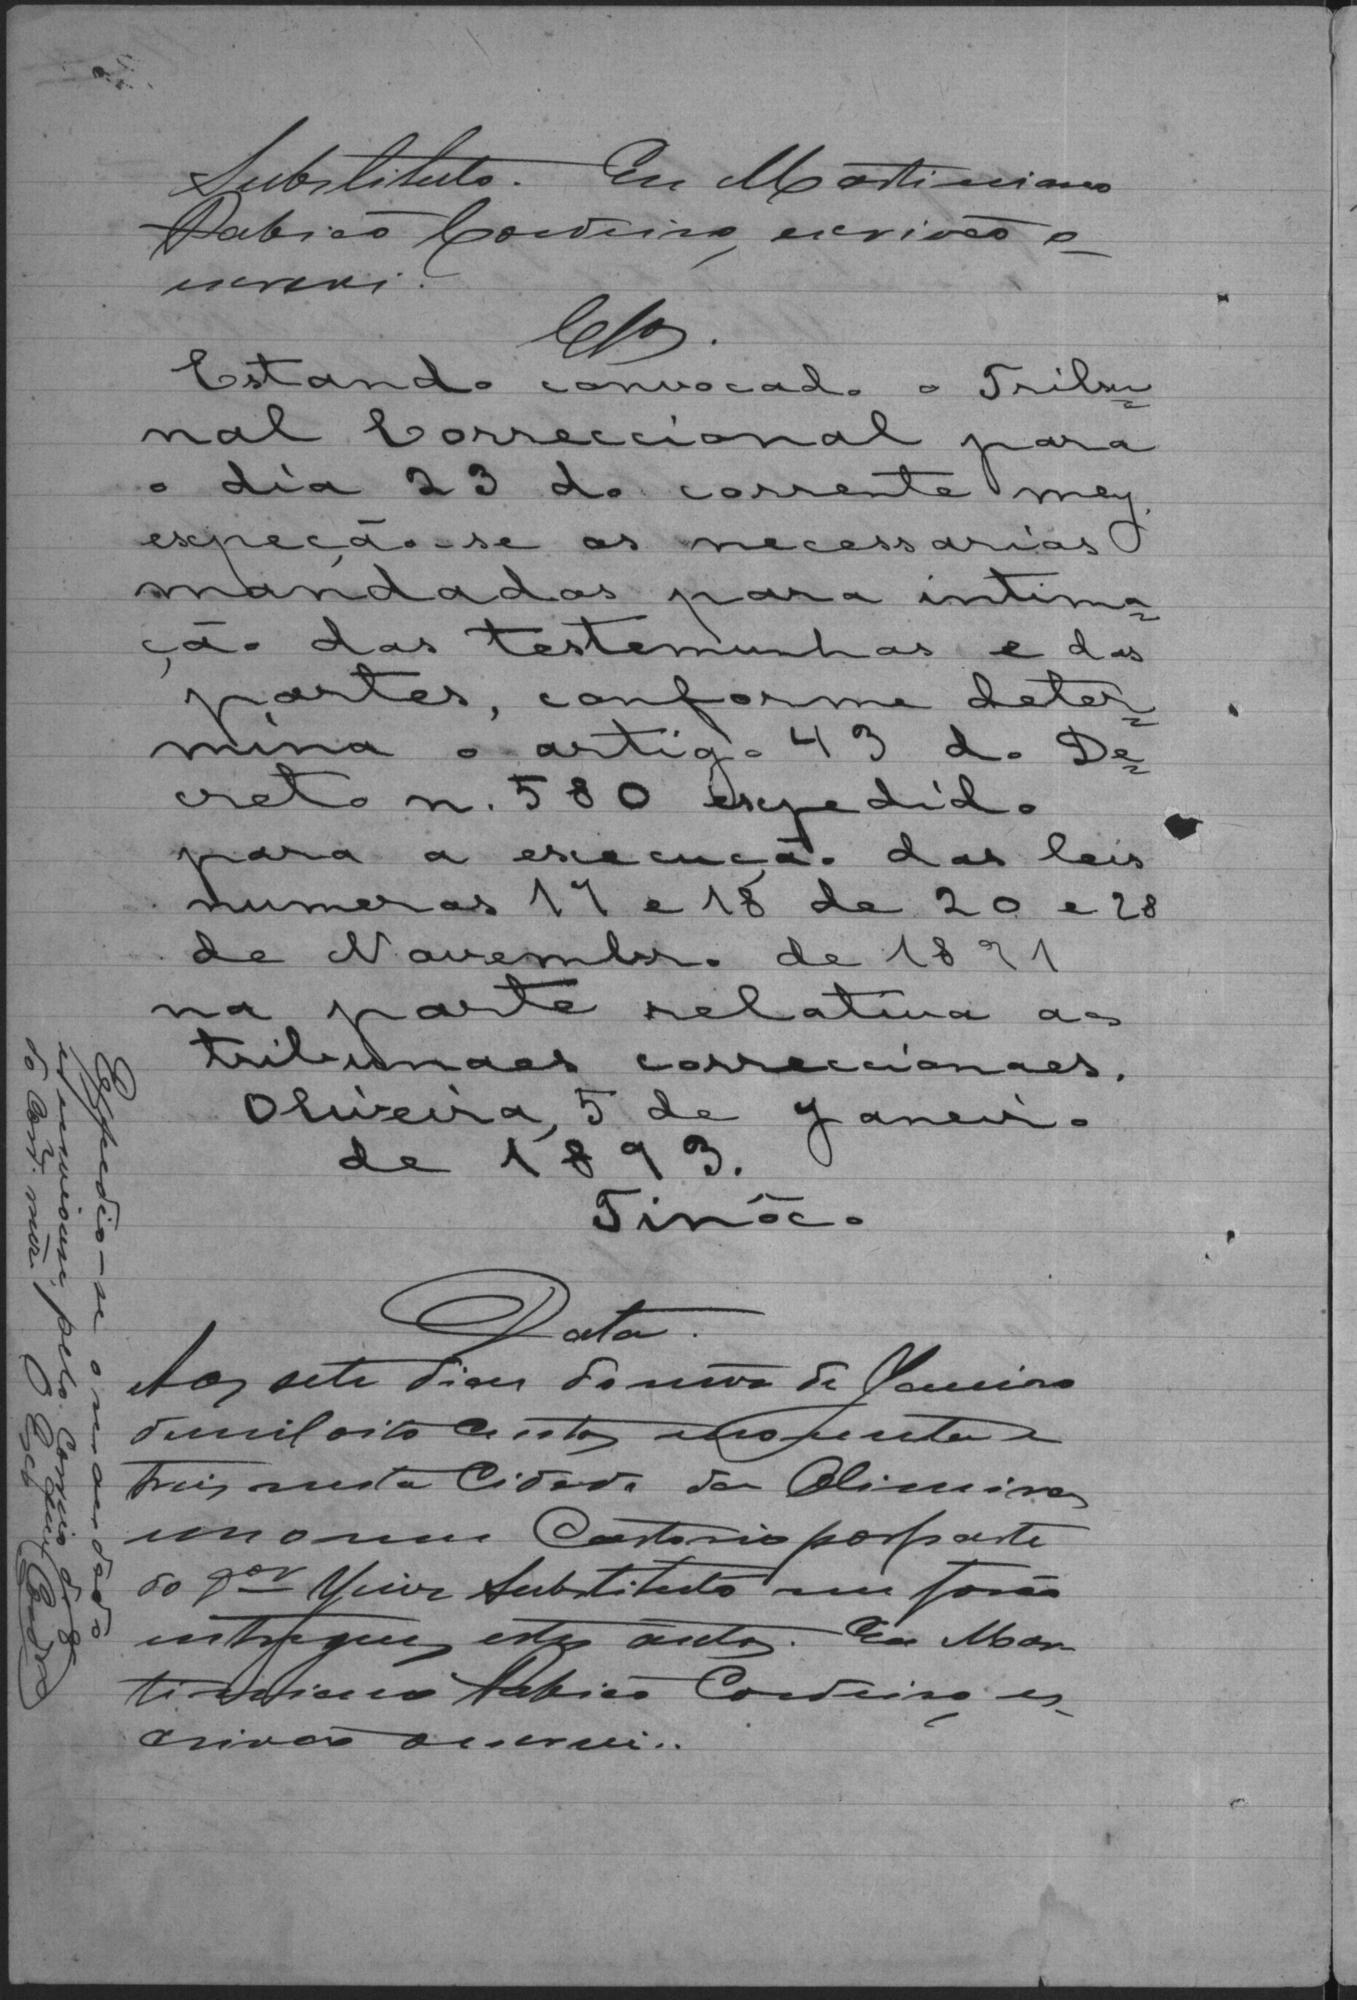 Substituto. Eu Martiniano
Rabico Cordeiro, escrivão o
escrevi.
Clsos.
Estando convocado o Tribu=
nal Correccional para
o dia 23 do corrente mez,
expeção-se os necessarios
mandados para intima=
ção das testemunhas e das
partes, conforme deter=
mina o artigo 43 do De=
creto n. 580 expedido
para a execução das leis
numeros 17 e 18 de 20 e 28
de Novembro de 1891
na parte relativa aos
tribunaes correccionaes.
Oliveira, 5 de Janeiro
de 1893.
Tinôco
Data.
Aos sete dias do mez de Janeiro
de mil oito centos e noventa e
tres, nesta Cidade de Oliveira,
em o meu Cartorio por parte
do Dor Juiz Substituto me forão
entregues estes autos. Eu Mar
tiniano Rabico Cordeiro, es-
crivão o escrevi..
Expedio-se o mandado
e enviou-se pelo Correio
do